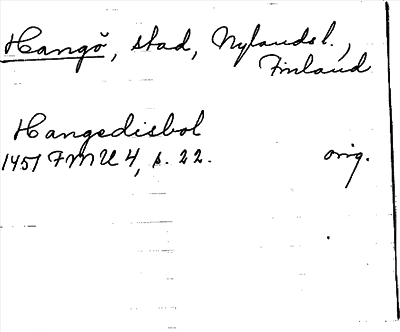 Hangö, stad, Nylands l.,
Finland
Hangedisbol
1451 FMU 4, s. 22. orig.